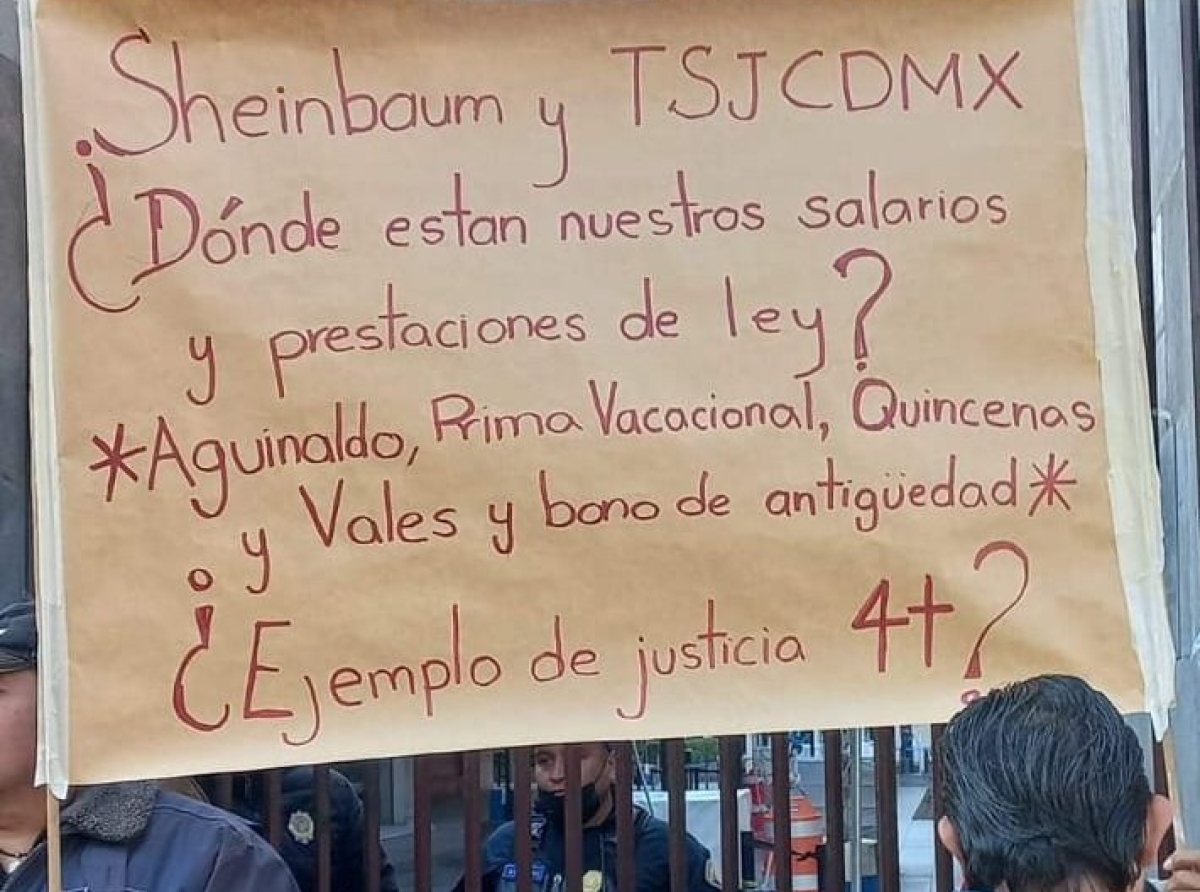 Sheinbaum y TSJCDMX
¿Dónde estan nuestros salarios
y prestaciones de ley?
*Aguinaldo, Prima Vacacional, Quincenas
y Vales y bono de antigüedad*
¿Ejemplo de justicia 4t?